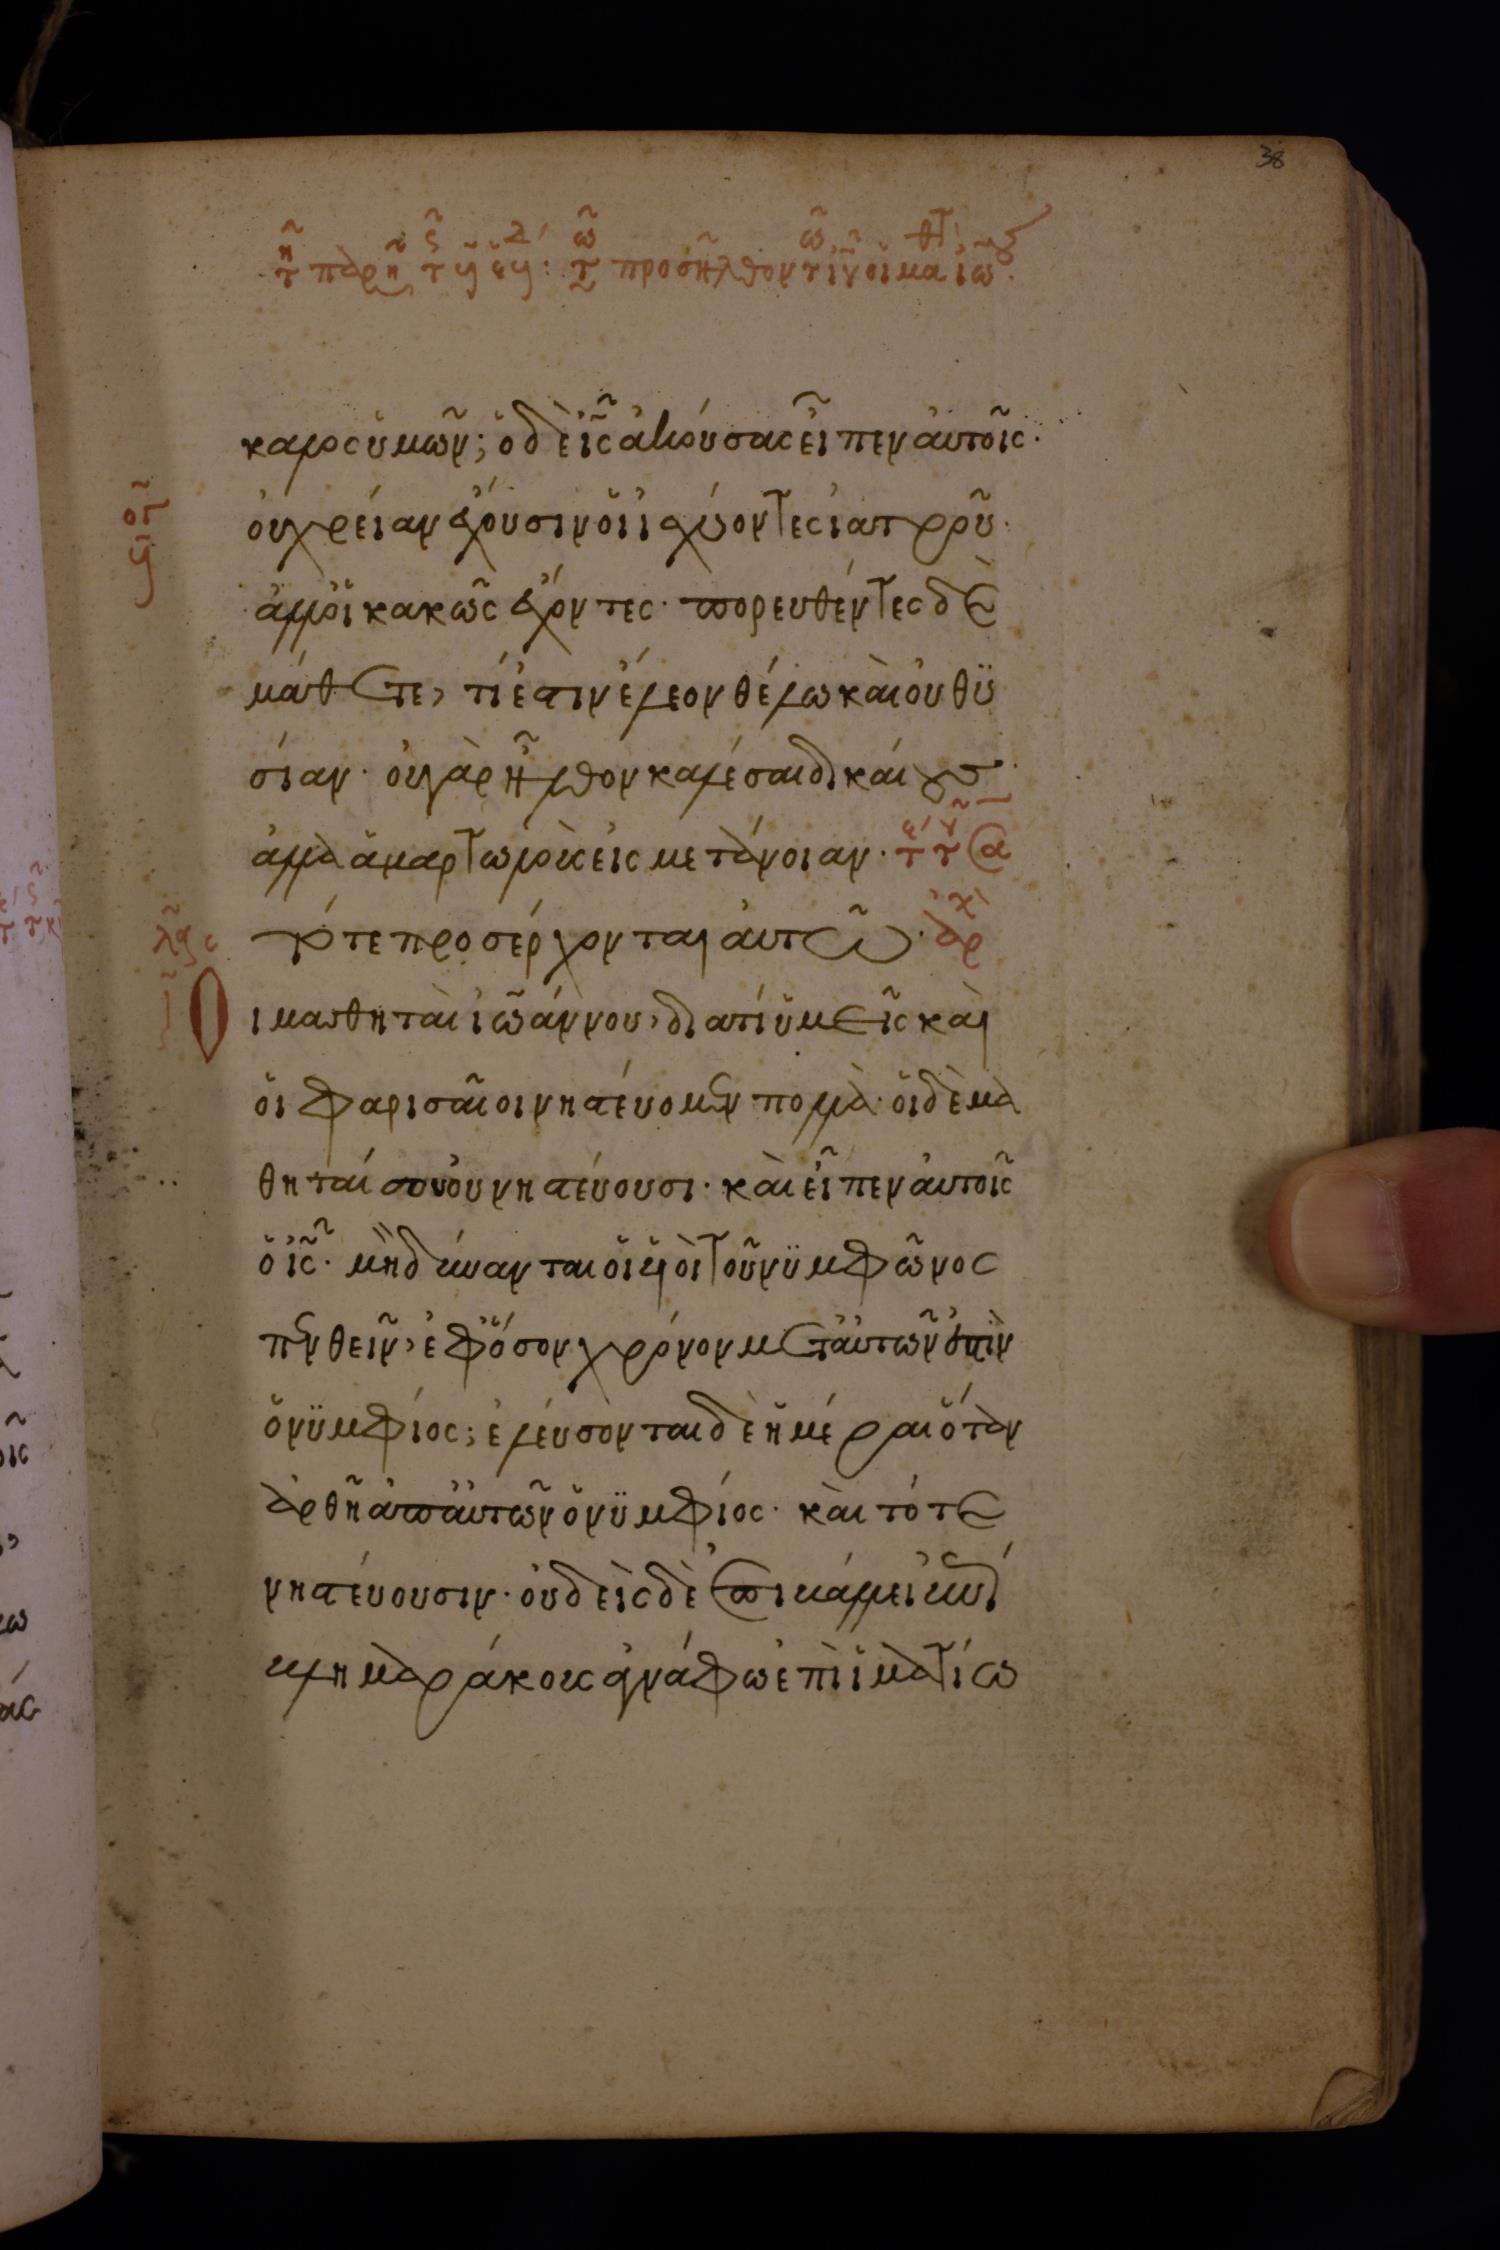 38
τῆ παρ τ ς εβ δ: τῶ προσῆλθον τῶ ιυ οι μαθτ ιω
καλος ὑμῶν; ὁ δὲ ις ἀκούσας εἶπεν αὐτοῖς·
οὐ χρείαν ἔχουσιν οἱ ἰσχύοντες ἰατροῦ·
ἀλλ' οἱ κακῶς ἔχοντες· πορευθέντες δὲ
μάθετε, τί ἐστιν ἔλεον θέλω καὶ οὐ θυ
σίαν· οὐ γὰρ ἦλθον καλέσαι δικαίους·
ἀλλὰ ἁμαρτωλοὺς εἰς μετάνοιαν· τε τ
τότε προσέρχονται αὐτῶ· ἀρχ
Οἱ μαθηταὶ ἰωάννου, διατί ὑμεῖς καὶ
οἱ φαρισαῖοι νηστεύομεν πολλὰ· οἱ δὲ μα
θηταί σου οὐ νηστεύουσι· καὶ εἶπεν αὐτοῖς
ὁ ις· μὴ δύνανται οἱ υἱοὶ τοῦ νυμφῶνος
πενθεῖν, ἐφ' ὅσον χρόνον μετ' αὐτῶν ἐστὶν
ὁ νυμφίος; ἐλεύσονται δὲ ἡμέραι ὅταν
ἀρθῆ ἀπ' αὐτῶν ὁ νυμφίος· καὶ τότε
νηστεύουσιν· οὐδεὶς δὲ ἐπιβάλλει ἐπί
βλημα ράκους ἀγνάφω ἐπὶ ἱματίω